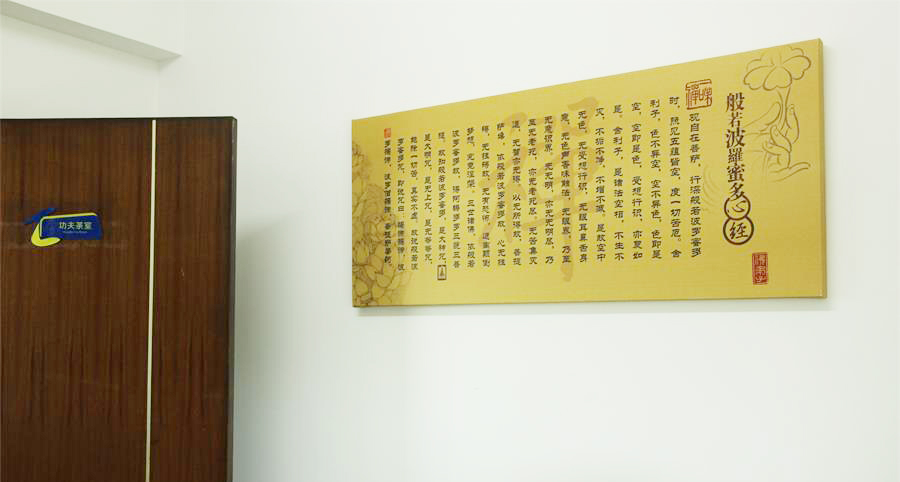 功夫茶室
般若波羅蜜多心经
观自在菩萨，行深般若波罗蜜多
时，照见五蕴皆空，度一切苦厄。舍
利子，色不异空，空不异色，色即是
空，空即是色，受想行识，亦复如
是。舍利子，是诸法空相，不生不
灭，不垢不净，不增不减。是故空中
无色，无受想行识，无眼耳鼻舌身
意，无色声香味触法，无眼界，乃至
无意识界，无无明，亦无无明尽，乃
至无老死，亦无老死尽，无苦集灭
道，无智亦无得。以无所得故，菩提
萨埵，依般若波罗蜜多故，心无挂
碍，无挂碍故，无有恐怖，远离颠倒
梦想，究竟涅槃。三世诸佛，依般若
波罗蜜多故，得阿耨多罗三藐三菩
提。故知般若波罗蜜多，是大神咒，
是大明咒，是无上咒，是无等等咒，
能除一切苦，真实不虚。故说般若波
罗蜜多咒，即说咒曰：揭谛揭谛，波
罗揭谛，波罗僧揭谛，菩提萨婆诃。